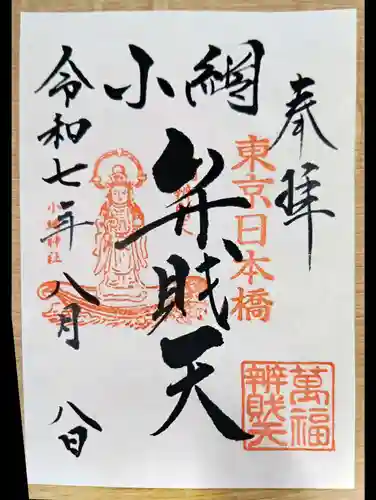 奉拝
東京日本橋
小網
弁財天
令和七年八月八日
小網神社
萬福
辨財天